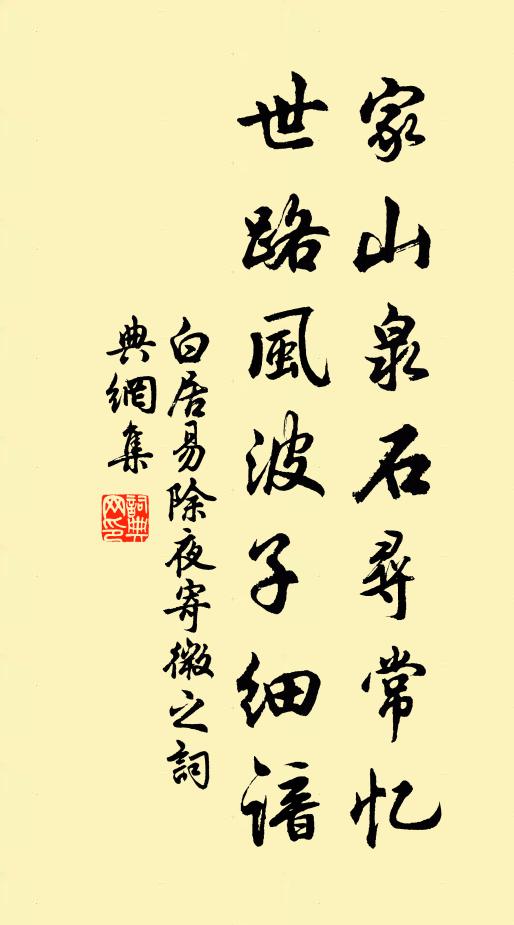 家山泉石尋常忆
世路風波子細諳
白居易除夜寄微之詞
典網集
詞典网印